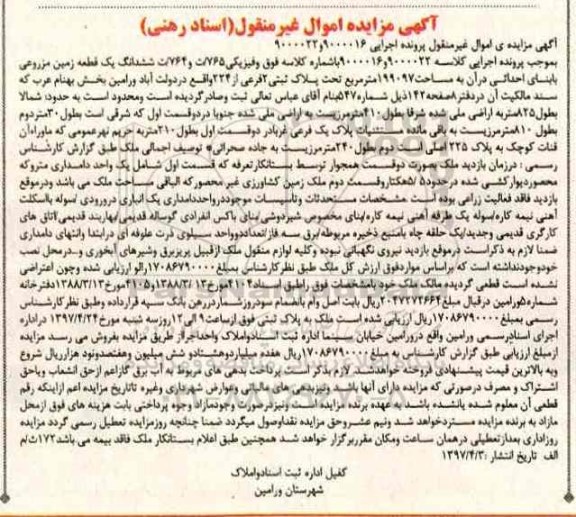 آگهی مزایده اموال غیرمنقول(اسناد رهنی)
آگهی مزایده ی اموال غیرمنقول پرونده اجرایی ۹۰۰۰۰۱۶و۹۰۰۰۰۲۲
بموجب پرونده اجرایی کلاسه ۹۰۰۰۰۲۲و۹۰۰۰۰۱۶باشماره کلاسه فوق وفیزیکی۷۶۵/ت و۷۶۴/ت ششدانگ یک قطعه زمین مزروعی
بابنای احداثی درآن به مساحت۱۹۹۰۹۷مترمربع تحت پلاک ثبتی۲فرعی از۲۲۴واقع دردولت آباد ورامین بخش بهنام عرب که
سند مالکیت آن دردفتر۸صفحه۱۴۲ذیل شماره۵۴۷بنام آقای عباس تعالی ثبت وصادرگردیده است ومحدود است به حدود: شمالا
بطول۸۲۵متربه اراضی ملی شده شرقا بطول۲۱۰مترمرزیست به اراضی ملی شده جنوبا دردوقسمت اول که شرقی است بطول۳۰متردوم
بطول ۸۱۰مترمرزیست به باقی مانده مستثنیات پلاک یک فرعی غربادر دوقسمت اول بطول۲۱۰متربه حریم نهرعمومی که ماوراءآن
قنات کوچک به پلاک ۲۲۵ اصلی است دوم بطول۲۴۰مترمرزیست به جاده صحرائی* توصیف اجمالی ملک طبق گزارش کارشناس
رسمی : درزمان بازدید ملک بصورت دوقسمت همجوار توسط بستانکارتعرفه که قسمت اول شامل یک واحد دامداری متروکه
محصوردیوارکشی شده درحدود۵/ هکتاروقسمت دوم ملک زمین کشاورزی غیر محصورکه الباقی مساحت ملک می باشد ودرموقع
بازدید فاقد فعالیت زراعی بوده است مشخصات مستحدثات وتاسیسات موجوددرواحددامداری یک انباری درورودی /سوله بااسکلت
آهنی نیمه کاره/سوله یک طرفه آهنی نیمه کاره/بنای مخصوص شیردوشی/بنای باکس انفرادی گوساله قدیمی/بهاربند قدیمی/اتاق های
کارگری قدیمی وجدید/یک حلقه چاه بامنبع ذخیره مربوطه/برق سه فاز/تعداددوواحد سیلوی ذرت علوفه ای درابتدا وانتهای دامداری
ضمنا لازم به ذکراست درموقع بازدید نیروی نگهبانی نبوده وکلیه لوازم منقول ملک ازقبیل پریزبرق وشیرهای آبخوری و..درمحل نصب
خودوجودنداشته است که براساس مواردفوق ارزش کل ملک طبق نظرکارشناس بمبلغ۱۷۰۸۶۷۹۰۰۰۰ارزیابی شده وچون اعتراضی
نشده است قطعی گردیده مالک ملک خود بامشخصات فوق راطبق اسناد۴۱۰۴مورخ۱۳۸۸/۳/۱۳و۴۱۰۵مورخ۱۳۸۸/۳/۱۳دفترخانه
شماره۵ورامین درقبال مبلغ۲۰۴۷۲۷۴۶۶۴ریال بابت اصل وام باانضمام سودروزشماردررهن بانک سپه قرارداده وطبق نظرکارشناس
رسمی بمبلغ۱۷۰۸۶۷۹۰۰۰۰ریال ارزیابی شده است ملک به پلاک ثبتی فوق ازساعت۹ الی ۱۲روزسه شنبه مورخ۱۳۹۷/۴/۲۴ دراداره
اجرای اسنادرسمی ورامین واقع درورامین خیابان سینما اداره ثبت اسنادواملاک واحداجراز طریق مزایده بفروش می رسد مزایده
ازمبلغ ارزیابی طبق گزارش کارشناس به مبلغ ۱۷۰۸۶۷۹۰۰۰۰ریال هفده میلیاردوهشتادو شش میلیون وهفتصدونود هزارریال شروع
وبه بالاترین قیمت پیشنهادی فروخته خواهدشد لازم بذکر است پرداخت بدهی های مربوط به آب برق گازاعم ازحق انشعاب ویاحق
اشتراک و مصرف درصورتی که مزایده دارای آنها باشد ونیزبدهی های مالیاتی وعوارض شهرداری وغیره تاتاریخ مزایده اعم ازاینکه رقم
قطعی آن معلوم شده یانشده باشد به عهده برنده مزایده است ونیزدرصورت وجودمازاد وجوه پرداختی بابت هزینه های فوق ازمحل
مازاد به برنده مزایده مستردخواهد شد ونیم عشروحق مزایده نقداوصول میگردد ضمنا چنانچه روزمزایده تعطیل رسمی گردد مزایده
روزاداری بعدازتعطیلی درهمان ساعت ومکان مقرربرگزار خواهد شد همچنین طبق اعلام بستانکار ملک فاقد بیمه می باشد۱۷۲/ث/م
الف تاریخ انتشار :۱۳۹۷/۴/۳
کفیل اداره ثبت اسنادواملاک
شهرستان ورامین